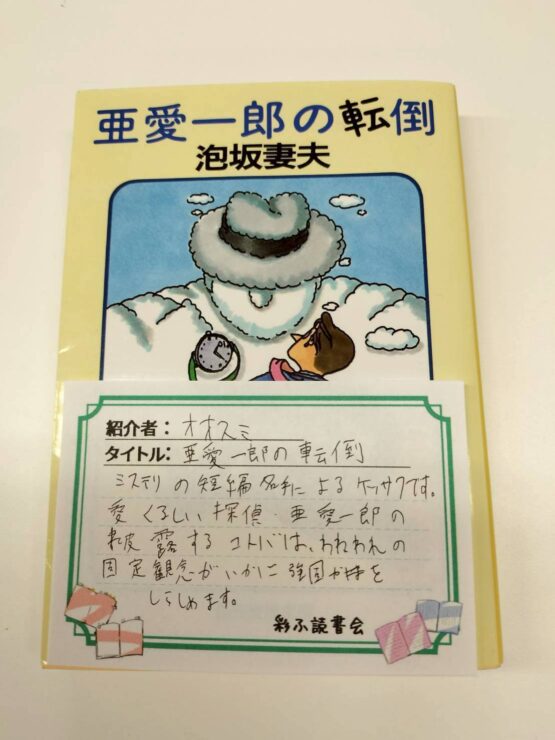 亜愛一郎の転倒
泡坂妻夫
紹介者：オオスミ
タイトル：亜愛一郎の転倒
ミステリの短編名手によるケッサクです。
愛くるしい探偵・亜愛一郎の
披露するコトバは、われわれの
固定観念がいかに強固かを
しらしめます。
彩ふ読書会